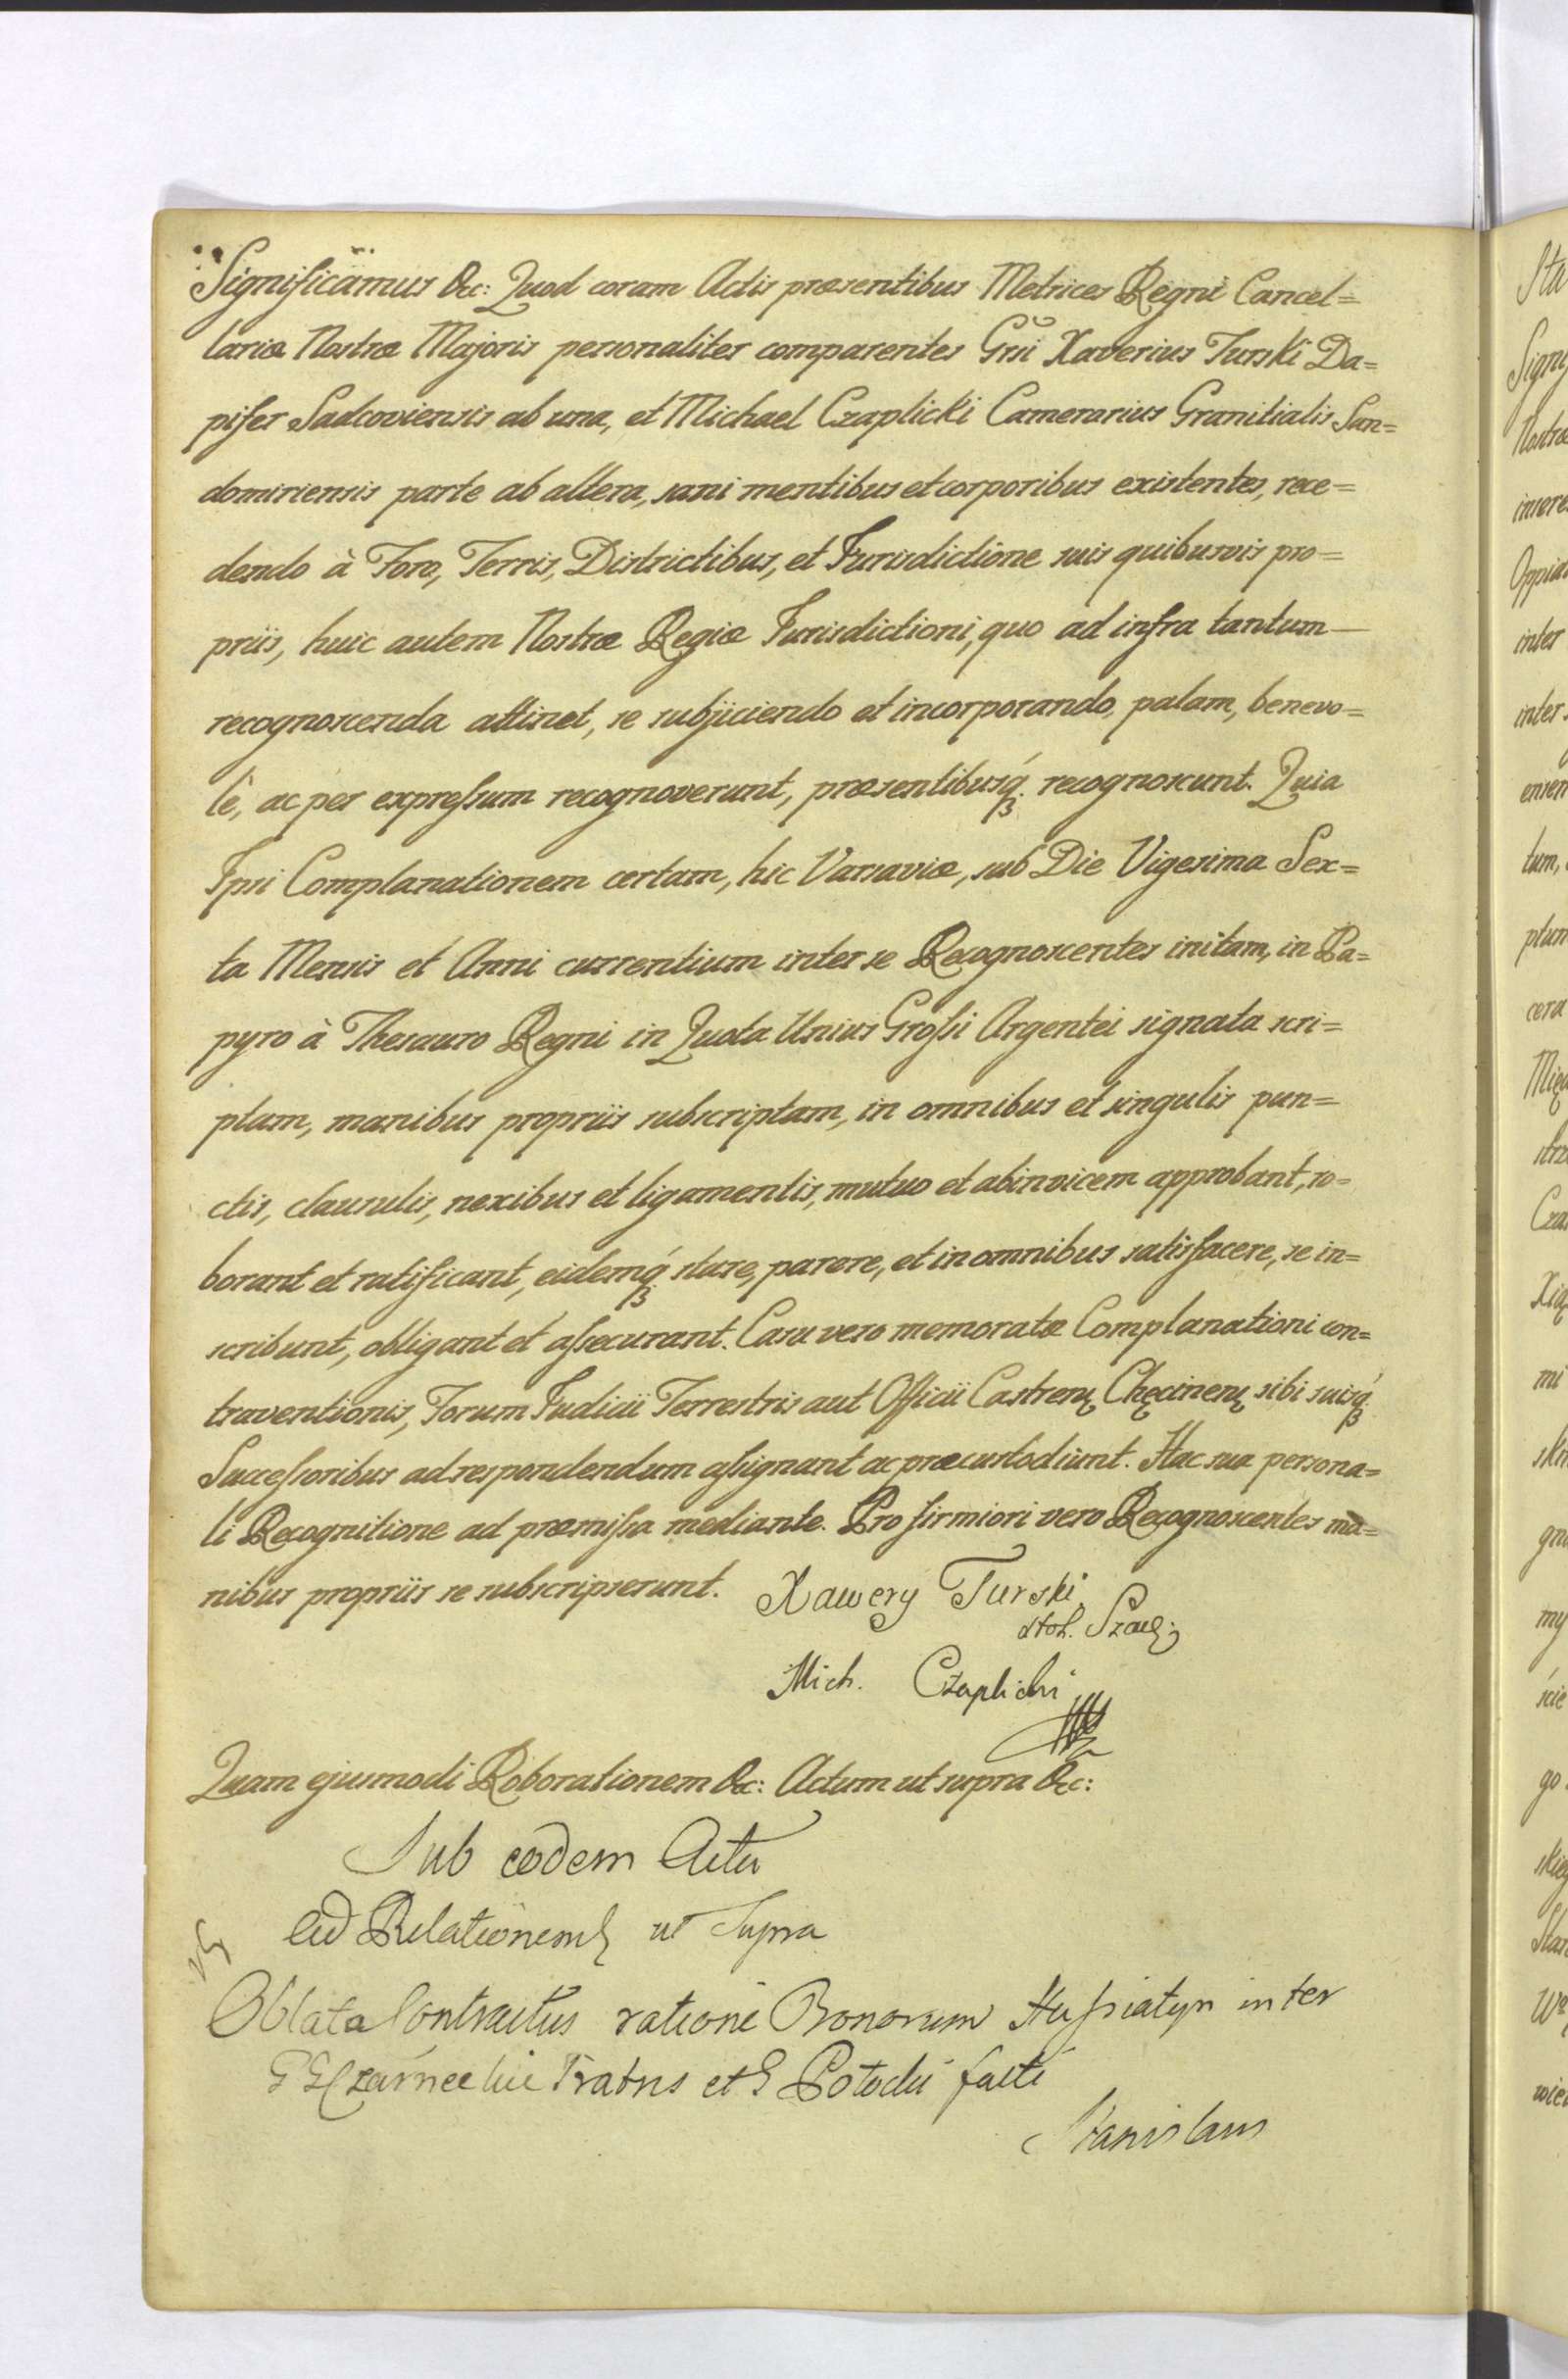 Significamus &c: Quod coram Actis præsentibus Metrices Regni Cancel=
lariæ Nostræ Majoris personaliter comparentes Gnsi Xaverius Turski Da=
pifer Sadcoviensis ab una, et Michael Czaplicki Camerarius Granitialis San=
domiriensis parte ab altera, sani mentibus et corporibus existentes, rece=
dendo à Foro, Terris, Districtibus, et Jurisdictione suis quibusvis pro=
priis, huic autem Nostræ Regiæ Jurisdictioni, quo ad infra tantum
recognoscenda attinet, se subjiciendo et incorporando, palam, benevo=
lè, ac per expressum recognoverunt, præsentibusq́. recognoscunt. Quia
Ipsi Complanationem certam, hic Varsaviæ, sub Die Vigesima Sex=
ta Mensis et Anni currentium inter se Recognoscentes initam, in Pa=
pyro à Thesauro Regni in Quota Unius Grossi Argentei signata scri=
ptam, manibus propriis subscriptam, in omnibus et singulis pun=
ctis, clausulis, nexibus et ligamentis, mutuo et abinvicem approbant, ro=
borant et ratificant, eidemq́ stare, parere, et in omnibus satisfacere, se in=
scribunt, obligant et assecurant. Casu vero memoratæ Complanationi con=
traventionis, Forum Judicii Terrestris aut Officii Castren. Chęcinen. sibi suisq́
Successoribus ad respondendum assignant ac præcustodiunt. Hac sua persona=
li Recognitione ad præmissa mediante. Pro firmiori vero Recognoscentes ma=
nibus propriis se subscripserunt. Xawery Turski
stol.
Mich. Czaplicki
Quam ejusmodi Roborationem &c: Actum ut supra &c:
Sub eodem Actu
Ad Relationem ut Supra
Oblata Contractus ratione Bonorum Husiatyn inter
Czarneckie Fratres et Potocki facti
Stanislaus